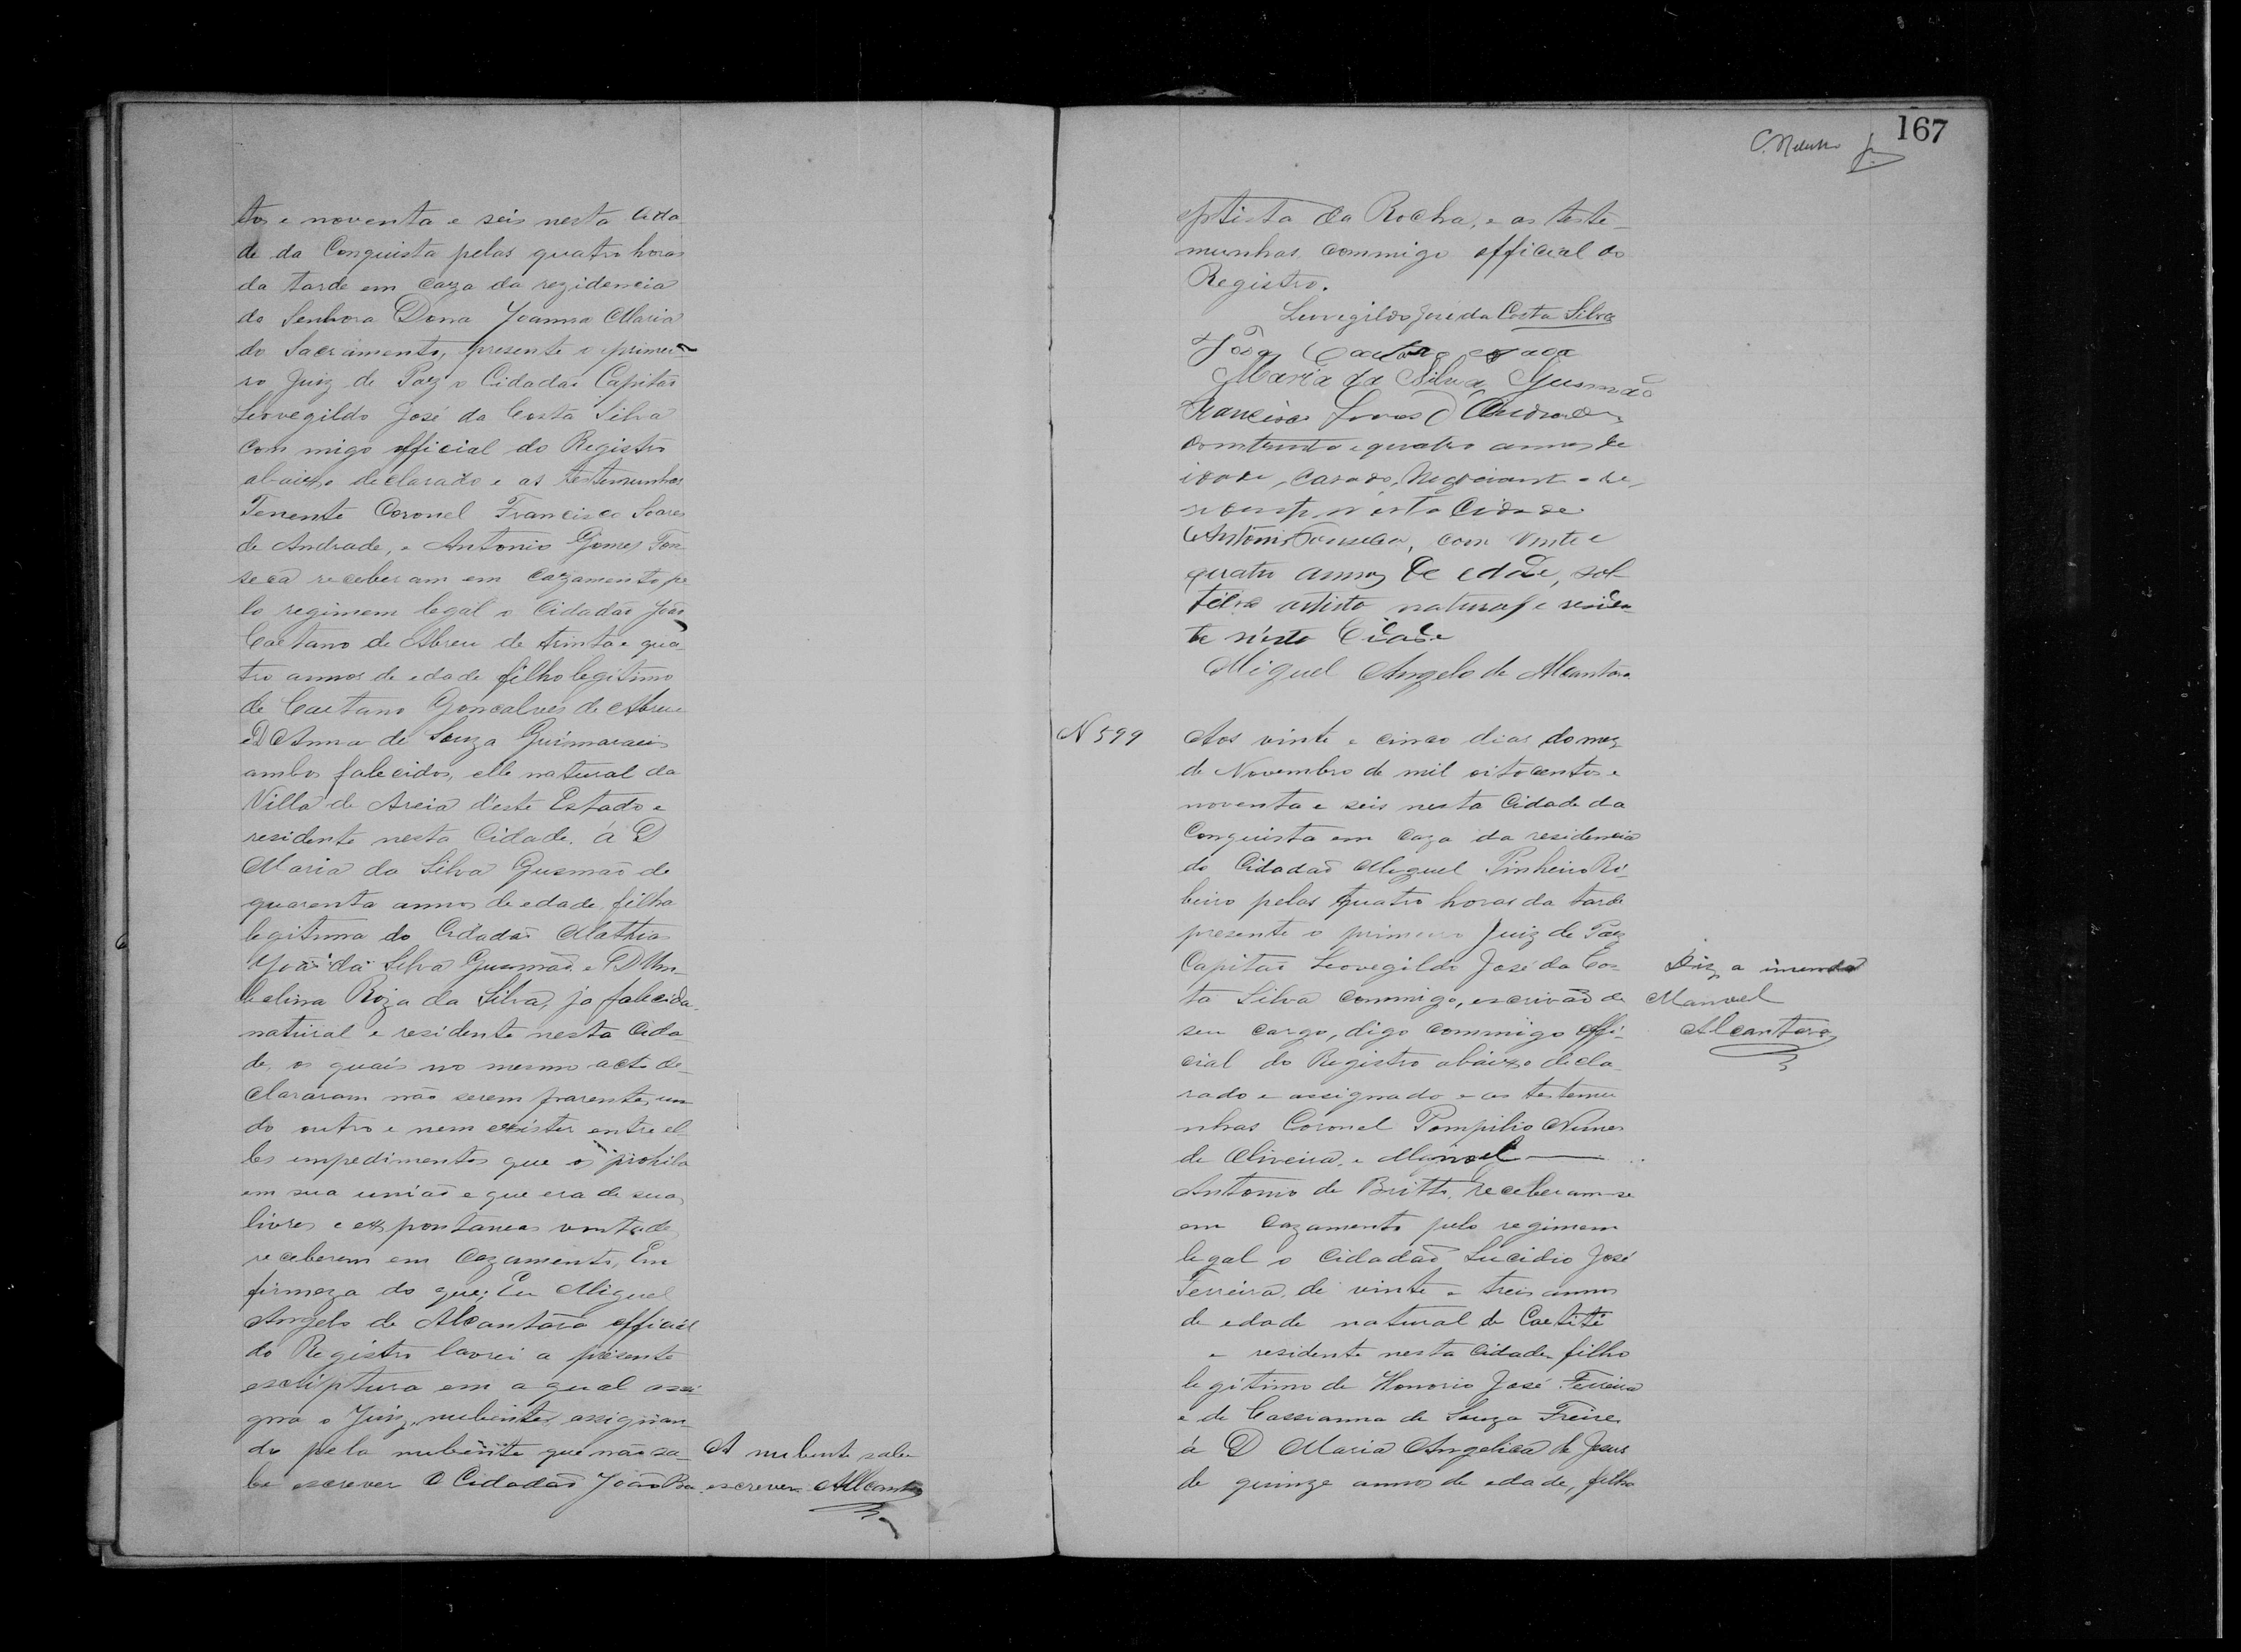 tos e noventa e seis nesta Cida
de da Conquista pelas quatro horas
da tarde em caza da rezidencia
da Senhora Dona Joanna Maria
do Sacramento, presente o primei-
ro Juiz de Paz o Cidadão Capitão
Leovegildo José da Costa Silva
com migo official do Registro
abaixo declarado e as testemunhas
Tenente Coronel Francisco Soares
de Andrade, e Antonio Gomes Fon
seca receberam em cazamento, pe
lo regimem legal o Cidadão João
Caetano de Abreu de trinta e qua
tro annos de edade filho legitimo
de Caetano Gonçalves de Abreu
e D Anna de Souza Guimaraeis
ambos falecidos, elle natural da
Villa de Areia d'este Estado e
residente nesta Cidade. á D
Maria da Silva Gusmão de
quarenta annos de edade, filha
legitima do Cidadão Mathias
João da Silva Gusmão e D Um-
belina Roza da Silva, ja falecida,
natural e residente nesta Cida
de, os quais no mesmo acto de-
clararam não serem parentes um
do outro e nem existir entre el-
les empedimentos que os prohiba
em sua união e que era de suas
livres e expontaneas vontades
receberem em Cazamento, Em
firmeza do que; Eu Miguel
Angelo de Alcantara official
do Registro lavrei a presente
escriptura em a qual assi
gna o Juiz, nubentes, assignan-
do pela nubente que não sa-
be escrever O Cidadão João Ba
A nubente sabe
escrever Alcantara
167
ptista da Rocha, e as teste-
munhas commigo official do
Registro.
Leovegildo José da Costa Silva
João Caetano
Maria da Silva Gusmão
Francisco Soares d Andrade
com trinta e quatro annos de
idade, casado, Negociante e re-
nesta Cidade
Antonio Fonseca, com vinte e
quatro annos de edade, sol-
teiro artista natural e residen-
te n'esta Cidade
Miguel Angelo de Alcantara
N 599
Aos vinte e cinco dias do mez
de Novembro de mil oitocentos e
noventa e seis nesta Cidade da
Conquista em caza da residencia
do Cidadão Miguel Pinheiro Ri-
beiro pelas quatro horas da tarde
presente o primeiro Juiz de Paz
Capitão Leovegildo José da Cos-
ta Silva commigo, escrivão de
seu cargo, digo commigo offi-
cial do Registro abaixo decla
rado e assignado e as testemu
nhas Coronel Pompilio Nunes
de Oliveira, e Manoel
Antonio de Britto, receberam-se
em cazamento pelo regimem
legal o Cidadão Lucidio José
Ferreira, de vinte e treis annos
de edade natural de Caetité
e residente nesta Cidade filho
legitimo de Honorio José Ferreira
e de Cassianna de Souza Freire
á D Maria Angelica de Jesus
de quinze annos de edade, filha
Diz a imenda
Manoel
Alcantara